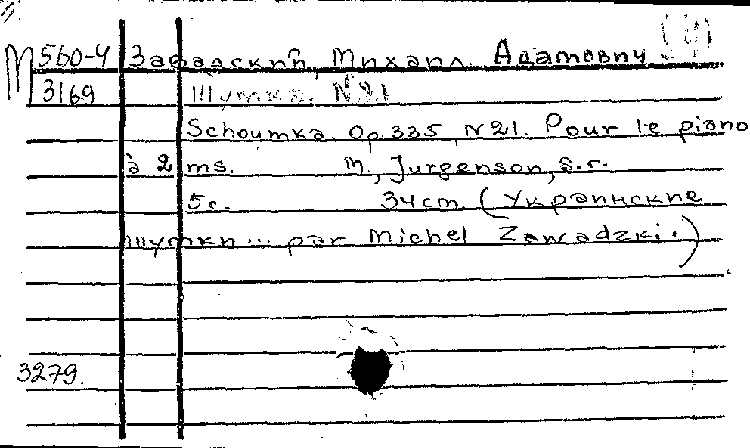 М 560-4 Завадский, Михаил Адамович
3169 Шутка. №21
Schoumka. Op. 335, N21. Pour le piano
à 2 ms. M., Jurgenson, s.г.
5с. 34 cm (Украинские
шутки... par Michel Zawadzki.)
3279.